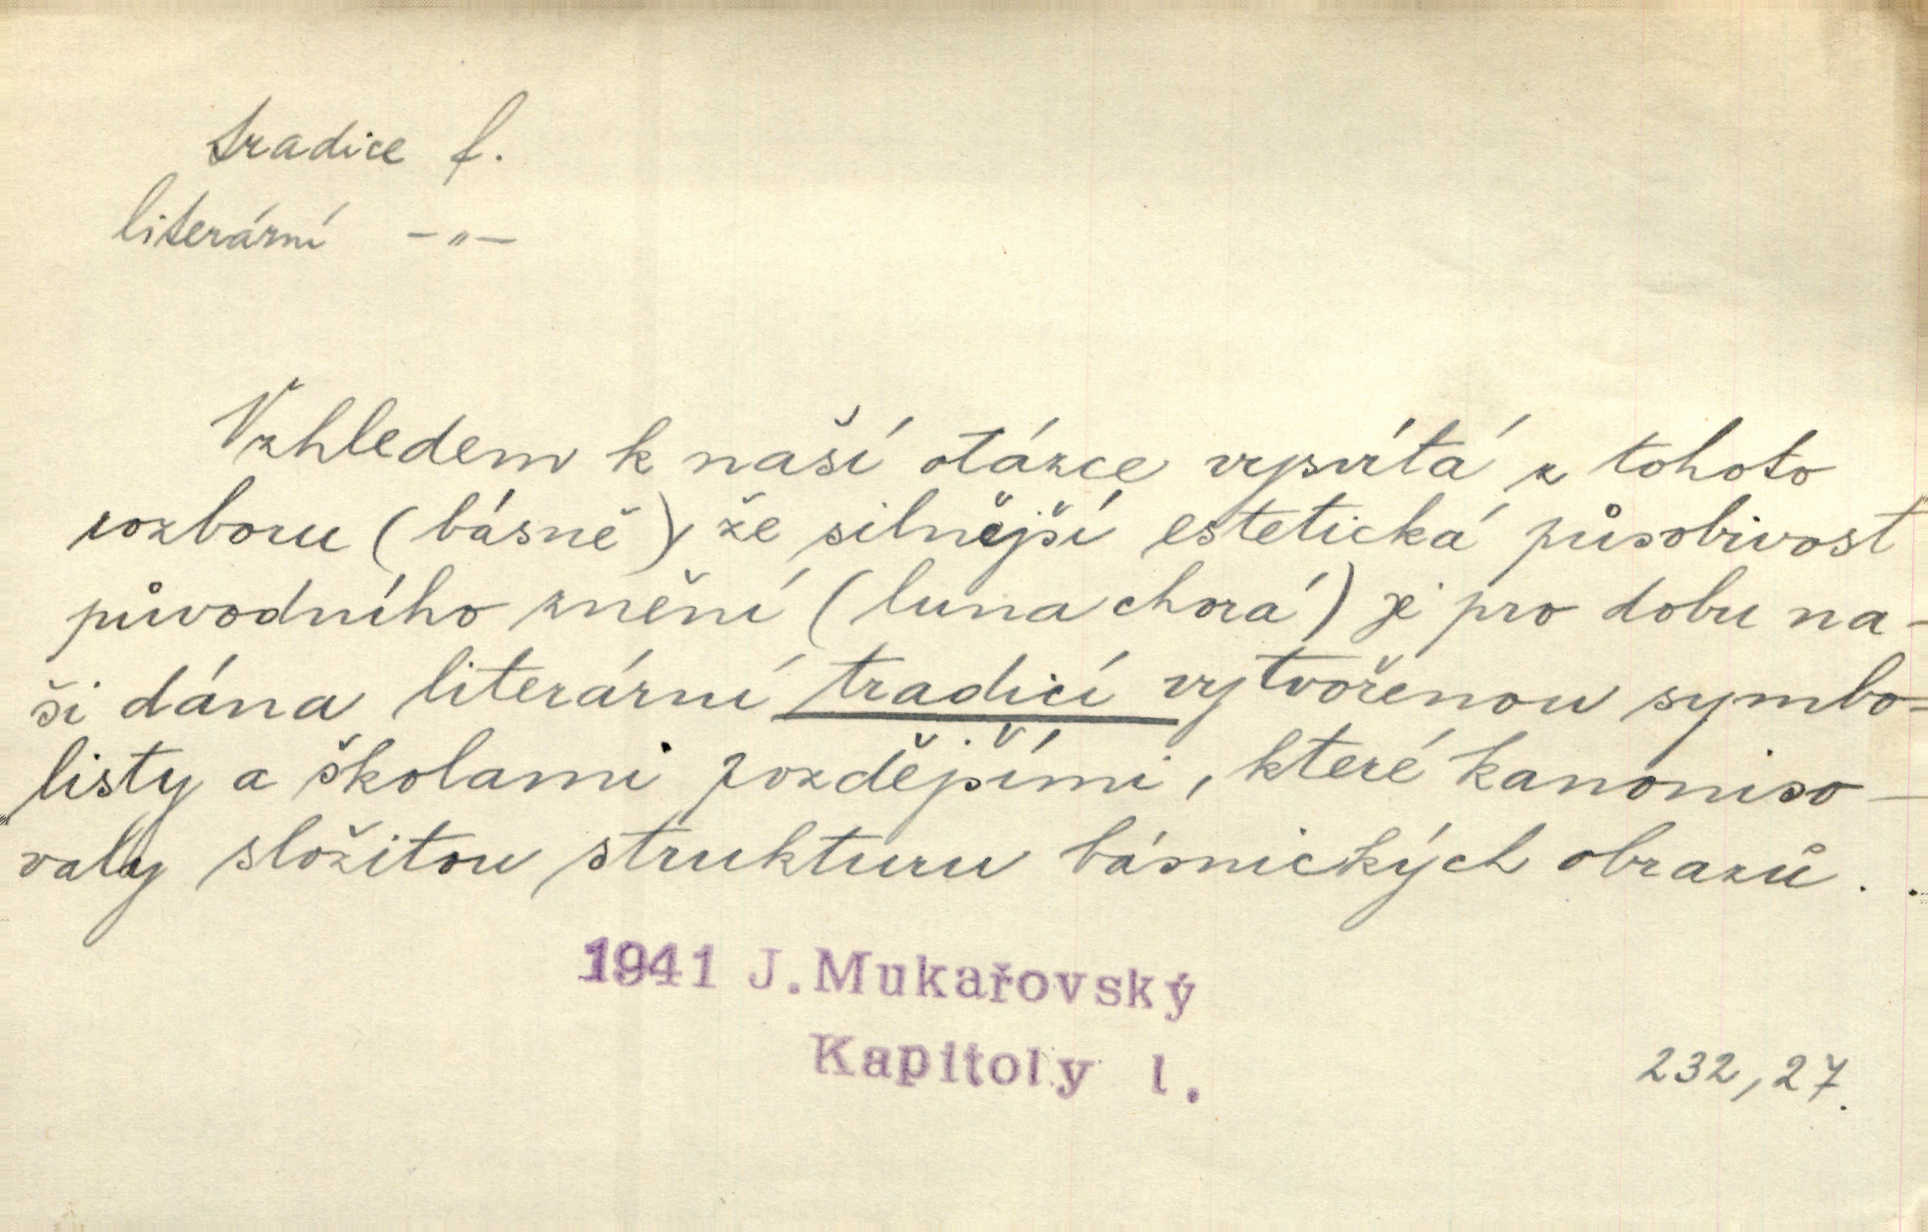 tradice f.
literární -"-
Vzhledem k naší otázce vysvítá z tohoto
rozboru (básně), že silnější estetická působivost
původního znění (luna chorá) je pro dobu na-
ši dána literární tradicí vytvořenou symbo-
listy a školami pozdějšími, které kanoniso-
valy složitou strukturu básnických obrazů . .
1941 J. Mukařovský
Kapitoly l.
232, 27.